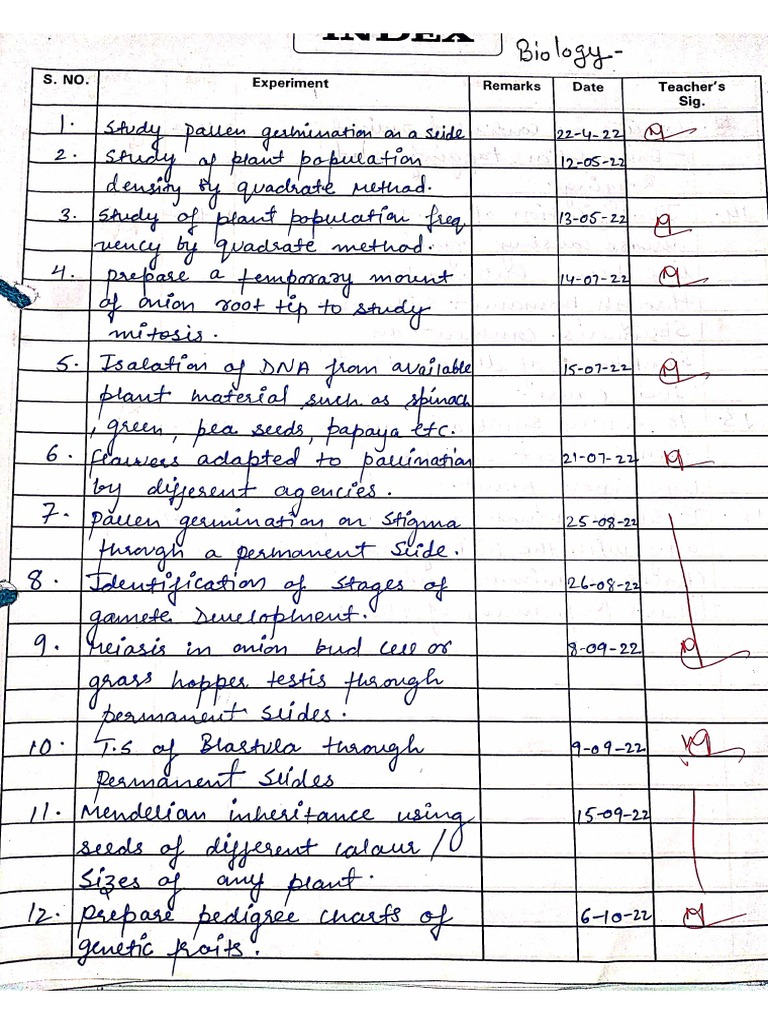 INDEX
Biology-
S. NO. Experiment Remarks Date Teacher's Sig.
1. Study pollen germination on a slide 22-4-22
2. Study of plant population 12-05-22
density by quadrate method.
3. Study of plant population freq 13-05-22
uency by quadrate method.
4. prepare a temporary mount 14-07-22
of onion root tip to study
mitosis.
5. Isolation of DNA from available 15-07-22
plant material such as spinach
, green, pea seeds, papaya etc.
6. flowers adapted to pollination 21-07-22
by different agencies.
7. Pollen germination on Stigma 25-08-22
through a permanent slide.
8. Identification of stages of 26-08-22
gamete Development.
9. Meiosis in onion bud cell or 8-09-22
grass hopper testis through
permanent slides.
10. T.S of Blastula through 9-09-22
permanent slides
11. Mendelian inheritance using 15-09-22
seeds of different colour /
Sizes of any plant.
12. Prepare pedigree charts of 6-10-22
genetic traits.